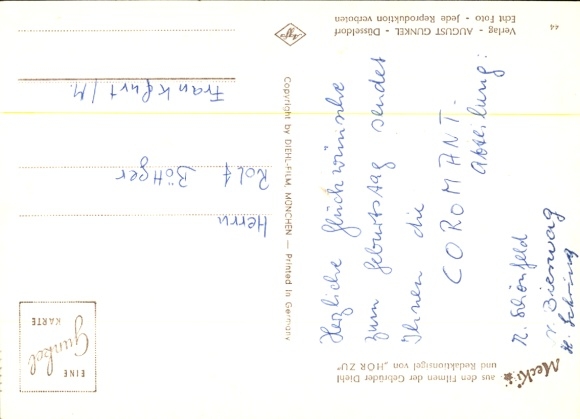 Mecki
aus den Filmen der Gebrüder Diehl
und Redaktionsigel von „HÖR ZU"
Herzliche Glückwünsche
zum Geburtstag sendet
Ihnen die
COROMANT-
Abteilung:
R. Schönfeld
Bierwag
44
Verlag - AUGUST GUNKEL - Düsseldorf
Echt Foto - Jede Reproduktion verboten
Agfa
Copyright by DIEHL-FILM, MÜNCHEN — Printed in Germany
EINE
Gunkel
KARTE
Herrn
Rolf Böttger
Frankfurt/M.